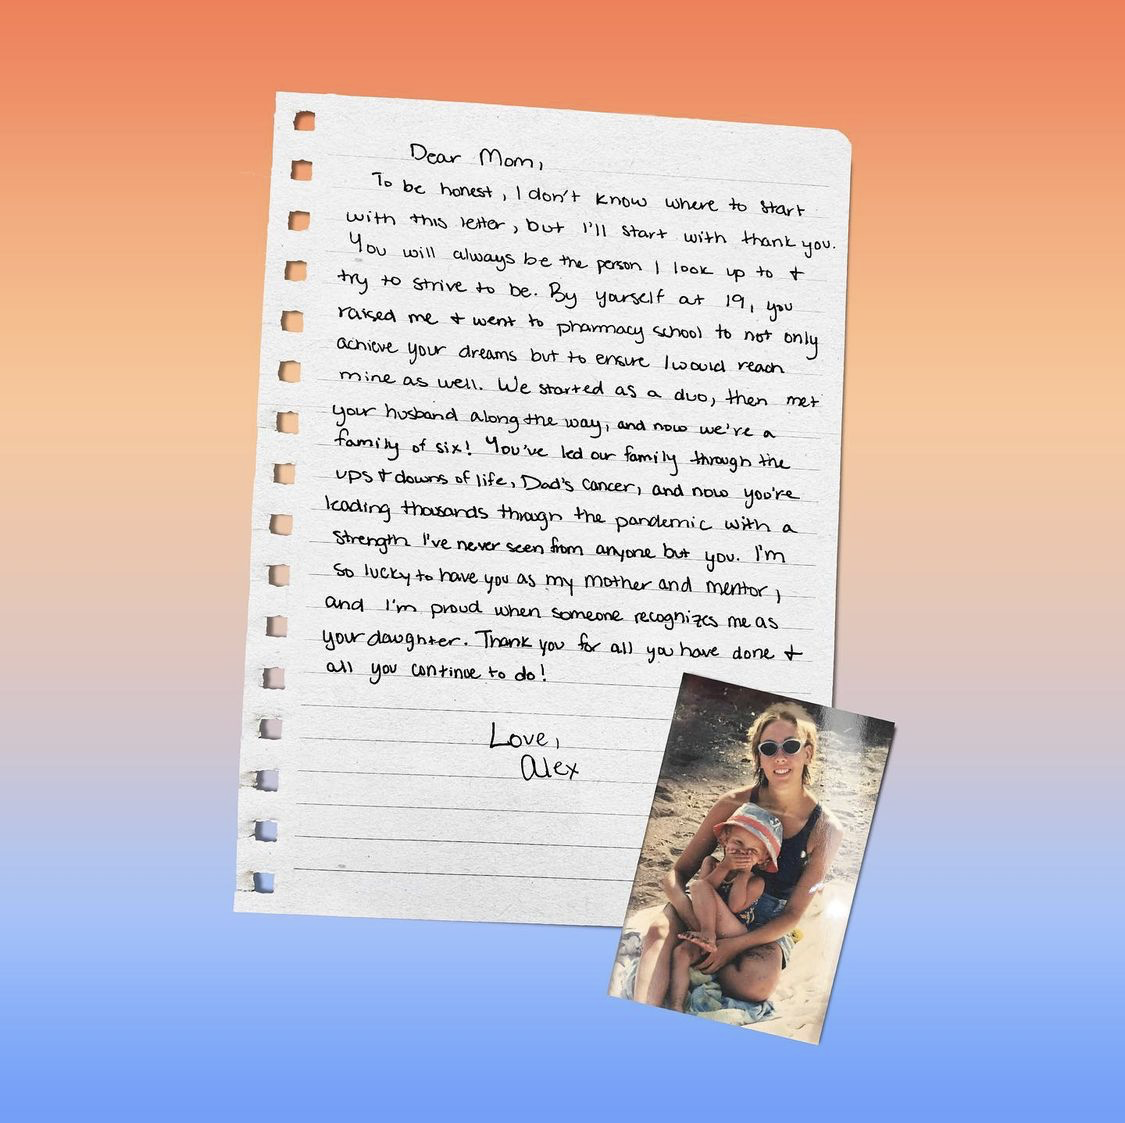 Dear Mom,
To be honest, I don't know where to start
with this letter, but I'll start with thank you.
You will always be the person I look up to +
try to strive to be. By yourself at 19, you
raised me + went to pharmacy school to not only
achieve your dreams but to ensure I would reach
mine as well. We started as a duo, then met
your husband along the way, and now we're a
family of six! You've led our family through the
ups + downs of life, Dad's cancer, and now you're
leading thousands through the pandemic with a
strength I've never seen from anyone but you. I'm
so lucky to have you as my mother and mentor,
and I'm proud when someone recognizes me as
your daughter. Thank you for all you have done +
all you continue to do!
Love,
Alex